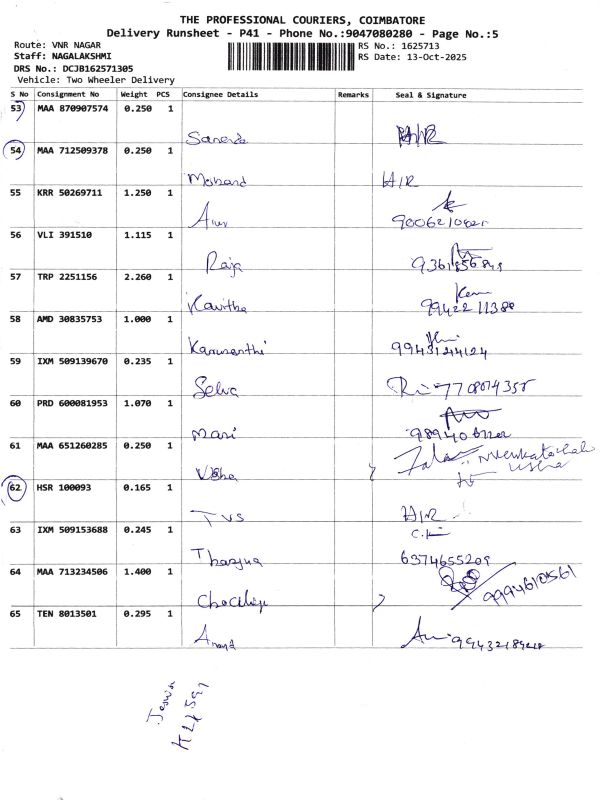 THE PROFESSIONAL COURIERS, COIMBATORE
Delivery Runsheet - P41 - Phone No.:9047080280 - Page No.:5
Route: VNR NAGAR RS No.: 1625713
Staff: NAGALAKSHMI RS Date: 13-Oct-2025
DRS No.: DCJB162571305
Vehicle: Two Wheeler Delivery
S No Consignment No Weight PCS Consignee Details Remarks Seal & Signature
53 MAA 870907574 0.250 1
54 MAA 712509378 0.250 1
Mohand H/R
55 KRR 50269711 1.250 1
56 VLI 391510 1.115 1
Raja
57 TRP 2251156 2.260 1
Kavitha
58 AMD 30835753 1.000 1
59 IXM 509139670 0.235 1
Selva 7708074355
60 PRD 600081953 1.070 1
Mari
61 MAA 651260285 0.250 1
Usha
62 HSR 100093 0.165 1
TVS H/R
63 IXM 509153688 0.245 1
6374655209
64 MAA 713234506 1.400 1
9994610561
65 TEN 8013501 0.295 1
Anand